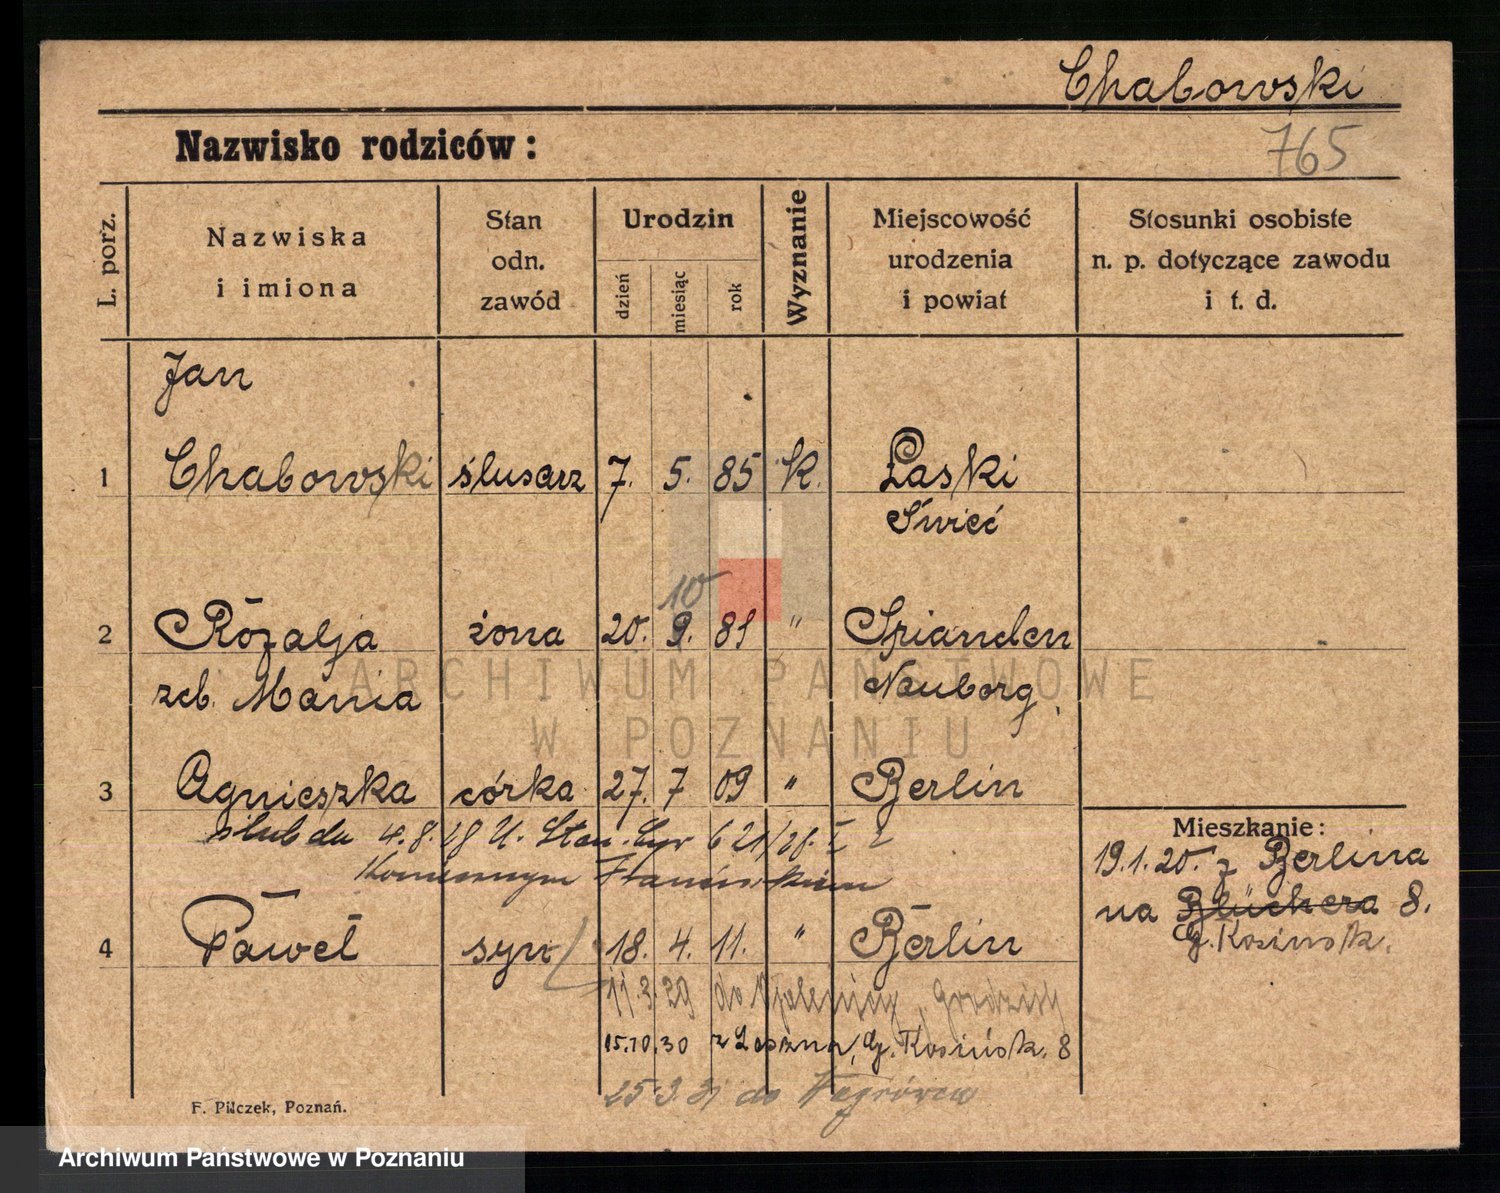 Chabowski
Nazwisko rodziców:
765
L. porz.
Nazwiska
i imiona
Stan
odn.
zawód
Urodzin
dzień
miesiąc
rok
Wyznanie
Miejscowość
urodzenia
i powiat
Stosunki osobiste
n. p. dotyczące zawodu
i t. d.
Jan
1 Chabowski ślusarz 7. 5. 85 K. Łaski
Świeć
10
2 Rozalja żona 20. 9. 81 " Spianden
zcb. Mania Neuborg
3 Agnieszka córka 27. 7 09 " Berlin
ślub dn 4.8.28 U. Stan. Cyw 621/28. I
4 Paweł syn 18. 4. 11. " Berlin
11.3.29 do Grodzisk
15.10.30 z Leszna, Gj. Kosińsk. 8
25.3.31 do Węgrówca
Mieszkanie:
19.1.20. z Berlina
na Blüchera 8.
Gj. Kosińsk.
F. Pilczek, Poznań.
ARCHIWUM PAŃSTWOWE
W POZNANIU
Archiwum Państwowe w Poznaniu